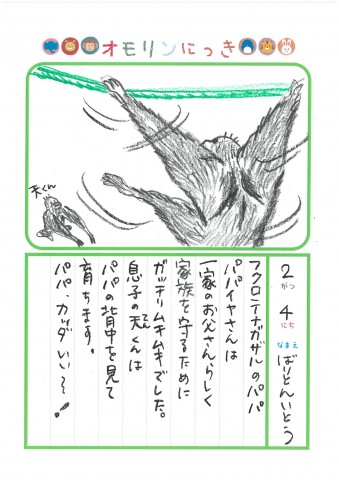 オモリンにっき
天くん
2がつ4にち
なまえ ばりとんいとう
フクロテナガザルのパパ
パパイヤさんは
一家のお父さんらしく
家族を守るために
ガッチリムキムキでした。
息子の天くんは
てん
パパの背中を見て
育ちます。
パパ、カッコいい〜!